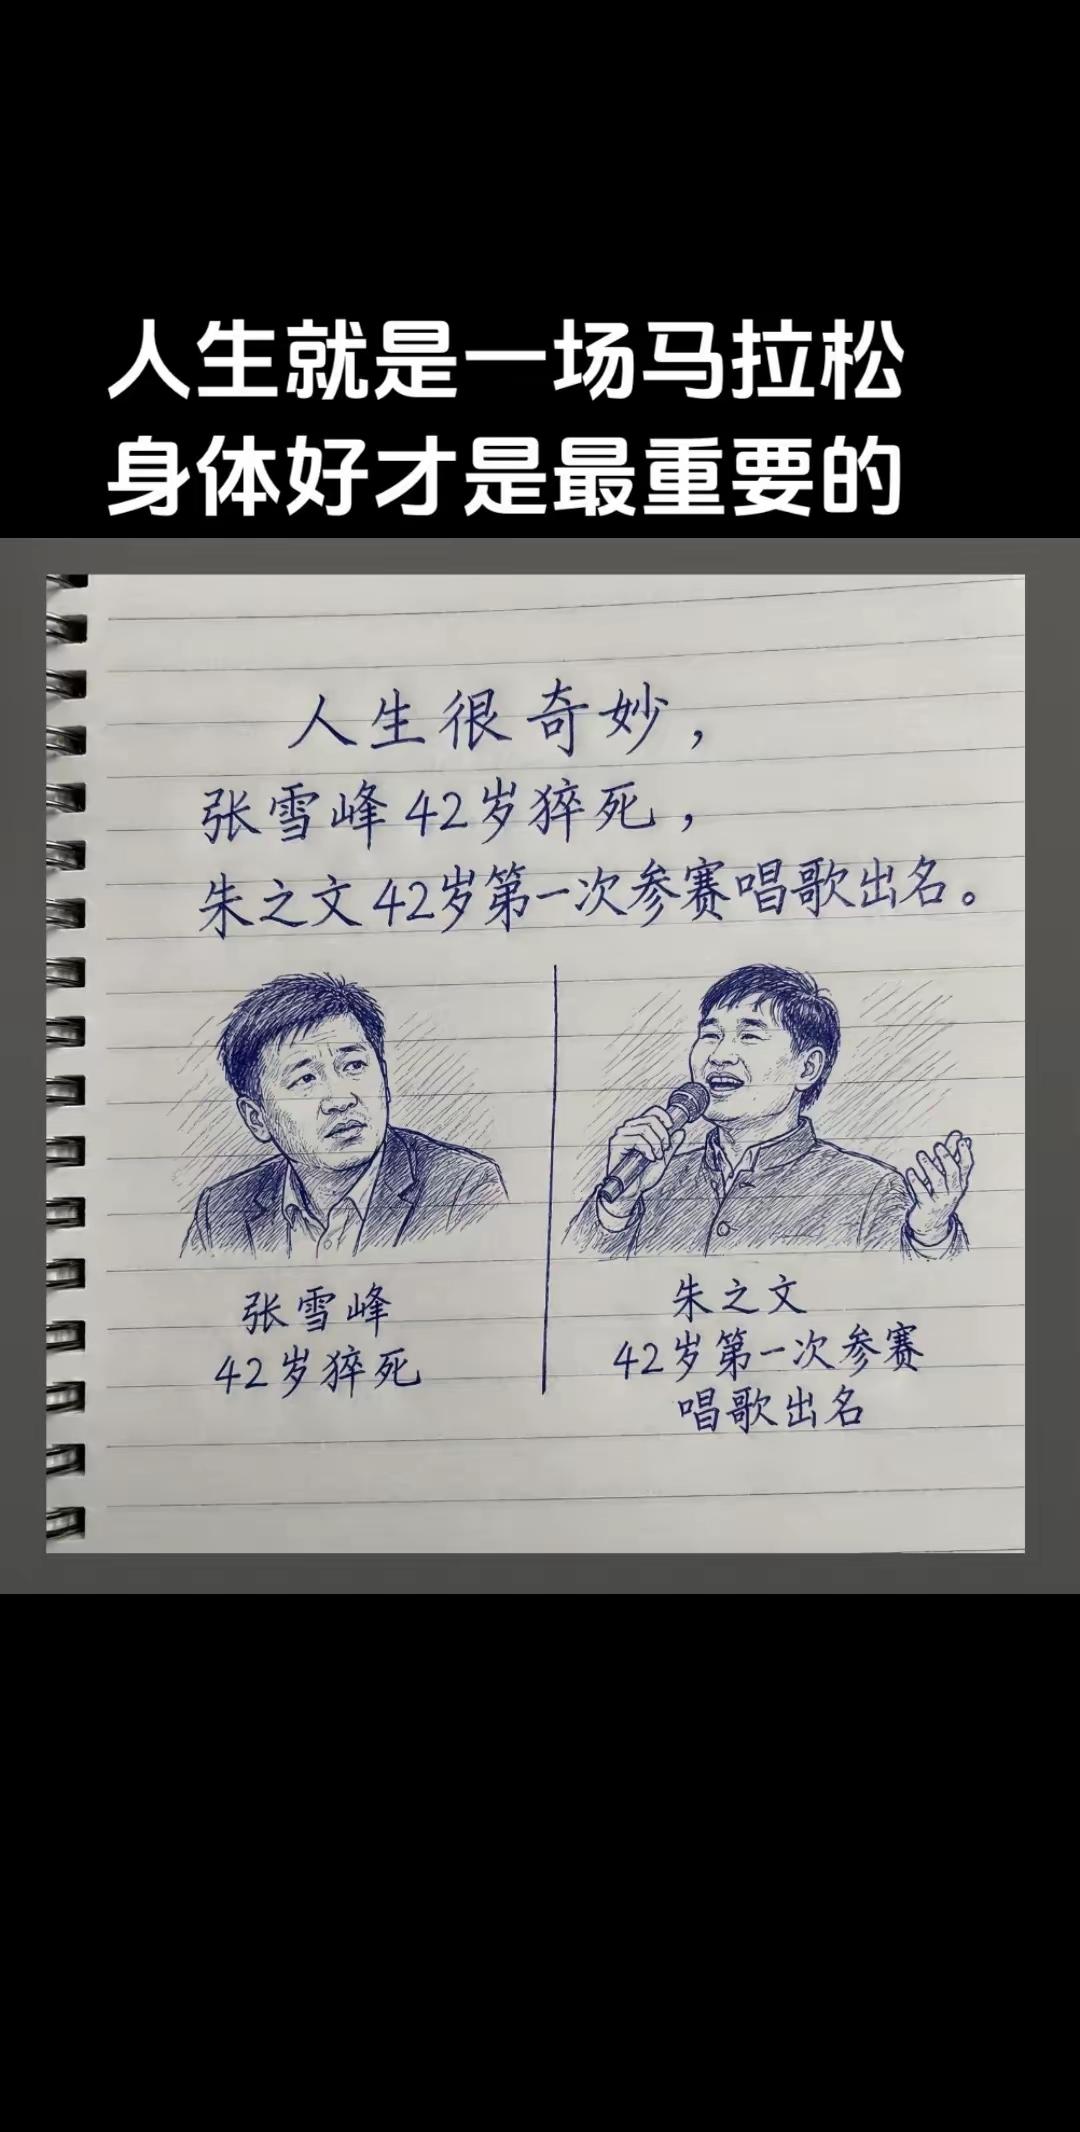 人生就是一场马拉松
身体好才是最重要的
人生很奇妙，
张雪峰42岁猝死，
朱之文42岁第一次参赛唱歌出名。
张雪峰
42岁猝死
朱之文
42岁第一次参赛
唱歌出名